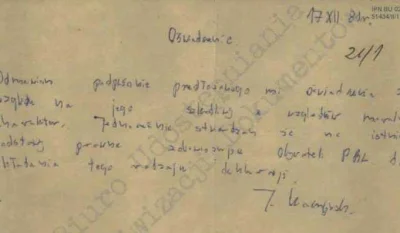 IPN BU 0
17 XII 81r.
Oświadczenie
20/1
Odmawiam podpisania przedłożonego mi oświadczenia z
względu na jego szkodliwy z względów moral
charakter. Jednocześnie stwierdzam że nie istnie
podstawy prawne zobowiązujące Obywateli PRL d
składania tego rodzaju deklaracji.
J. Kaczyński
Biuro Udostępniania
Archiwizacji Dokumentów